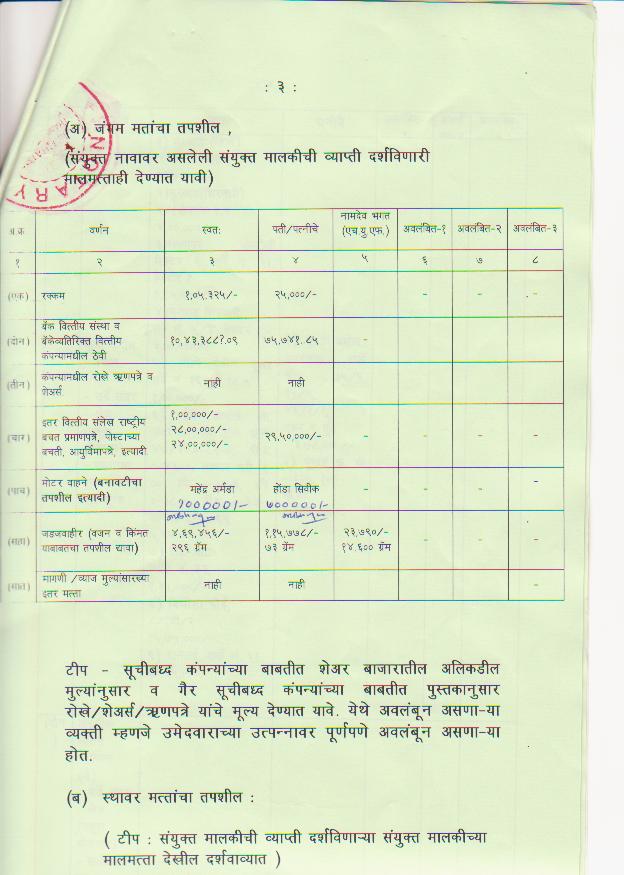 : ३ :
(अ) जंगम मतांचा तपशील ,
(संयुक्त नावावर असलेली संयुक्त मालकीची व्याप्ती दर्शविणारी
मालमत्ताही देण्यात यावी)
NOTARY
अ.क्र वर्णन स्वतः पती/पत्नीचे नामदेव भगत (एच.यु.एफ.) अवलंबित-१ अवलंबित-२ अवलंबित-३
१ २ ३ ४ ५ ६ ७ ८
(एक) रक्कम १,०५,३२५/- २५,०००/- - - -
बँक वित्तीय संस्था व
(दोन) बँकेव्यतिरिक्त वित्तीय १०,४३,३८८?.०९ ७५,७४१.८५ - - - -
कंपन्यामधील ठेवी
(तीन) कंपन्यामधील रोखे ऋणपत्रे व
शेअर्स. नाही नाही
१,००,०००/-
इतर वित्तीय संलेख राष्ट्रीय २८,००,०००/-
(चार) बचत प्रमाणपत्रे, पोस्टाच्या २४,००,०००/- २९,५०,०००/- - - - -
बचती, आयुर्विमापत्रे, इत्यादी.
(पाच) मोटर वाहने (बनावटीचा महेंद्र अर्मडा होंडा सिवीक - - - -
तपशील इत्यादी) 700000/- 700000/-
जडजवाहीर (वजन व किंमत ४,६९,४५६/- १,१५,७७८/- २३,७९०/- - - -
याबाबतचा तपशील द्यावा) २९६ ग्रॅम ७३ ग्रॅम १४.६०० ग्रॅम
(सात) मागणी /व्याज मुल्यांसारख्या नाही नाही -
इतर मत्ता
टीप - सूचीबध्द कंपन्यांच्या बाबतीत शेअर बाजारातील अलिकडील
मुल्यांनुसार व गैर सूचीबध्द कंपन्यांच्या बाबतीत पुस्तकानुसार
रोखे/शेअर्स/ऋणपत्रे यांचे मूल्य देण्यात यावे. येथे अवलंबून असणा-या
व्यक्ती म्हणजे उमेदवाराच्या उत्पन्नावर पूर्णपणे अवलंबून असणा-या
होत.
(ब) स्थावर मत्तांचा तपशील :
( टीप : संयुक्त मालकीची व्याप्ती दर्शविणाऱ्या संयुक्त मालकीच्या
मालमत्ता देखील दर्शवाव्यात )